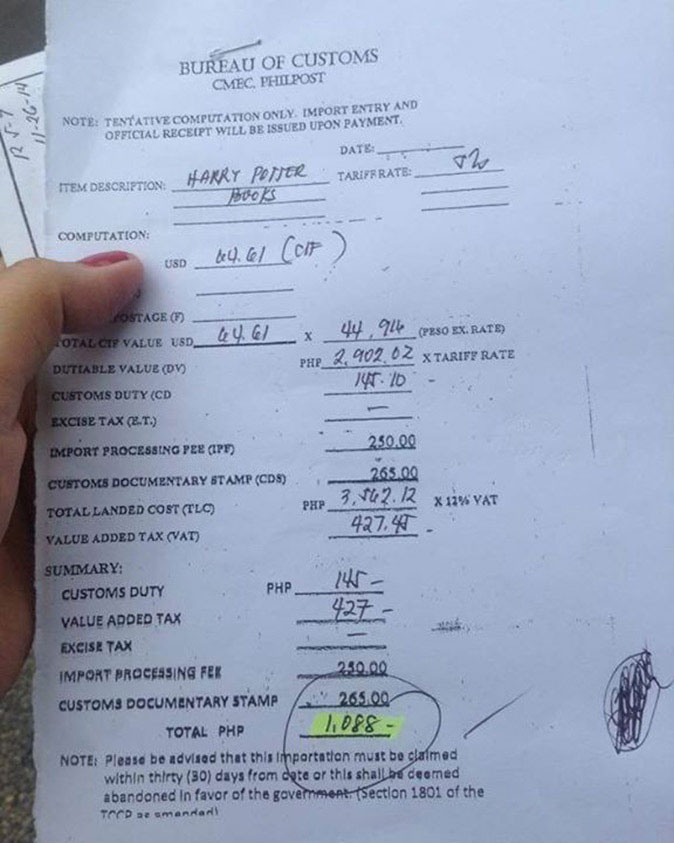 11-26-14
BUREAU OF CUSTOMS
CMEC, PHILPOST
NOTE: TENTATIVE COMPUTATION ONLY. IMPORT ENTRY AND
OFFICIAL RECEIPT WILL BE ISSUED UPON PAYMENT.
DATE:
ITEM DESCRIPTION: HARRY POTTER TARIFF RATE: 5%
BOOKS
COMPUTATION:
USD 64.61 (CIF)
POSTAGE (F)
TOTAL CIF VALUE USD 64.61 X 44.916 (PESO EX. RATE)
DUTIABLE VALUE (DV) PHP 2,902.02 X TARIFF RATE
CUSTOMS DUTY (CD 145.10 -
EXCISE TAX (E.T.) -
IMPORT PROCESSING FEE (IPF) 250.00
CUSTOMS DOCUMENTARY STAMP (CDS) 265.00
TOTAL LANDED COST (TLC) PHP 3,562.12 X 12% VAT
VALUE ADDED TAX (VAT) 427.45 -
SUMMARY:
CUSTOMS DUTY PHP 145 -
VALUE ADDED TAX 427 -
EXCISE TAX -
IMPORT PROCESSING FEE 250.00
CUSTOMS DOCUMENTARY STAMP 265.00
TOTAL PHP 1,088 -
NOTE: Please be advised that this importation must be claimed
within thirty (30) days from date or this shall be deemed
abandoned in favor of the government. (Section 1801 of the
TCCP as amended)